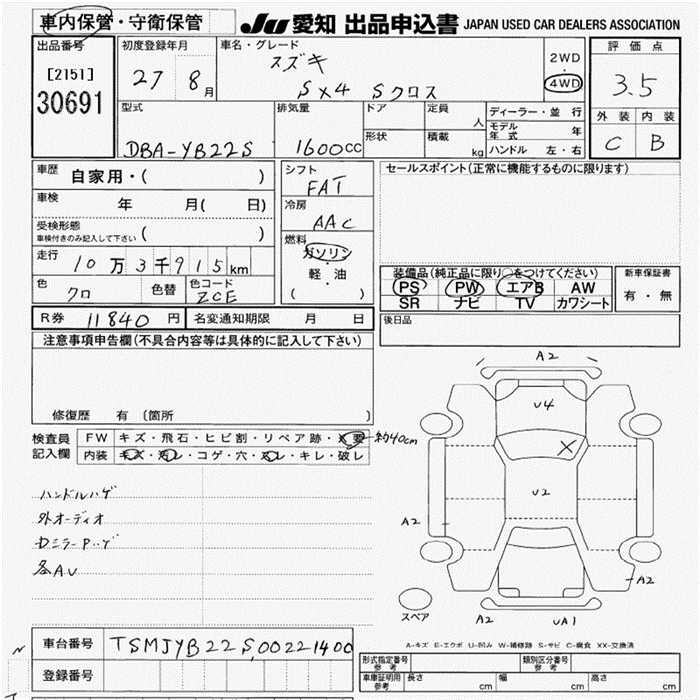 車内保管・守衛保管 JU 愛知 出品申込書 JAPAN USED CAR DEALERS ASSOCIATION
出品番号 初度登録年月 車名・グレード 評価点
[2151] 27 8月 スズキ 2WD・4WD 3.5
30691 SX4 Sクロス 外装 内装
型式 排気量 ドア 定員 人 ディーラー・並行 C B
DBA-YB22S 1600CC 形状 積載 kg モデル年式 年
ハンドル 左・右
車歴 自家用・( ) シフト FAT セールスポイント(正常に機能するものに限ります)
車検 年 月( 日) 冷房 AAC
受検形態 車検付きのみ記入して下さい ( ) 燃料 ガソリン
走行 10万3千915km 軽・油
色 クロ 色替 色コード ZCE ( )
装備品(純正品に限り○をつけてください) 新車保証書
PS PW エアB AW 有・無
SR ナビ TV カワシート
R券 11840円 名変通知期限 月 日 後日品
注意事項申告欄(不具合内容等は具体的に記入して下さい)
修復歴 有 (箇所 )
検査員記入欄 FW キズ・飛石・ヒビ割・リペア跡・X要 約40cm
内装 キズ・汚レ・コゲ・穴・スレ・キレ・破レ
ハンドルハゲ
外オーディオ
DミラーPハゲ
各AU
A2
U4
X
U2
A2
A2
スペア A2 UA1
A-キズ E-エクボ U-凹み W-補修跡 S-サビ C-腐食 XX-交換済
車台番号 TSMJYB22S00221400
登録番号
形式指定番号 参考 類別区分番号 参考
車庫証明用 参考 長さ cm 幅 cm 高さ cm